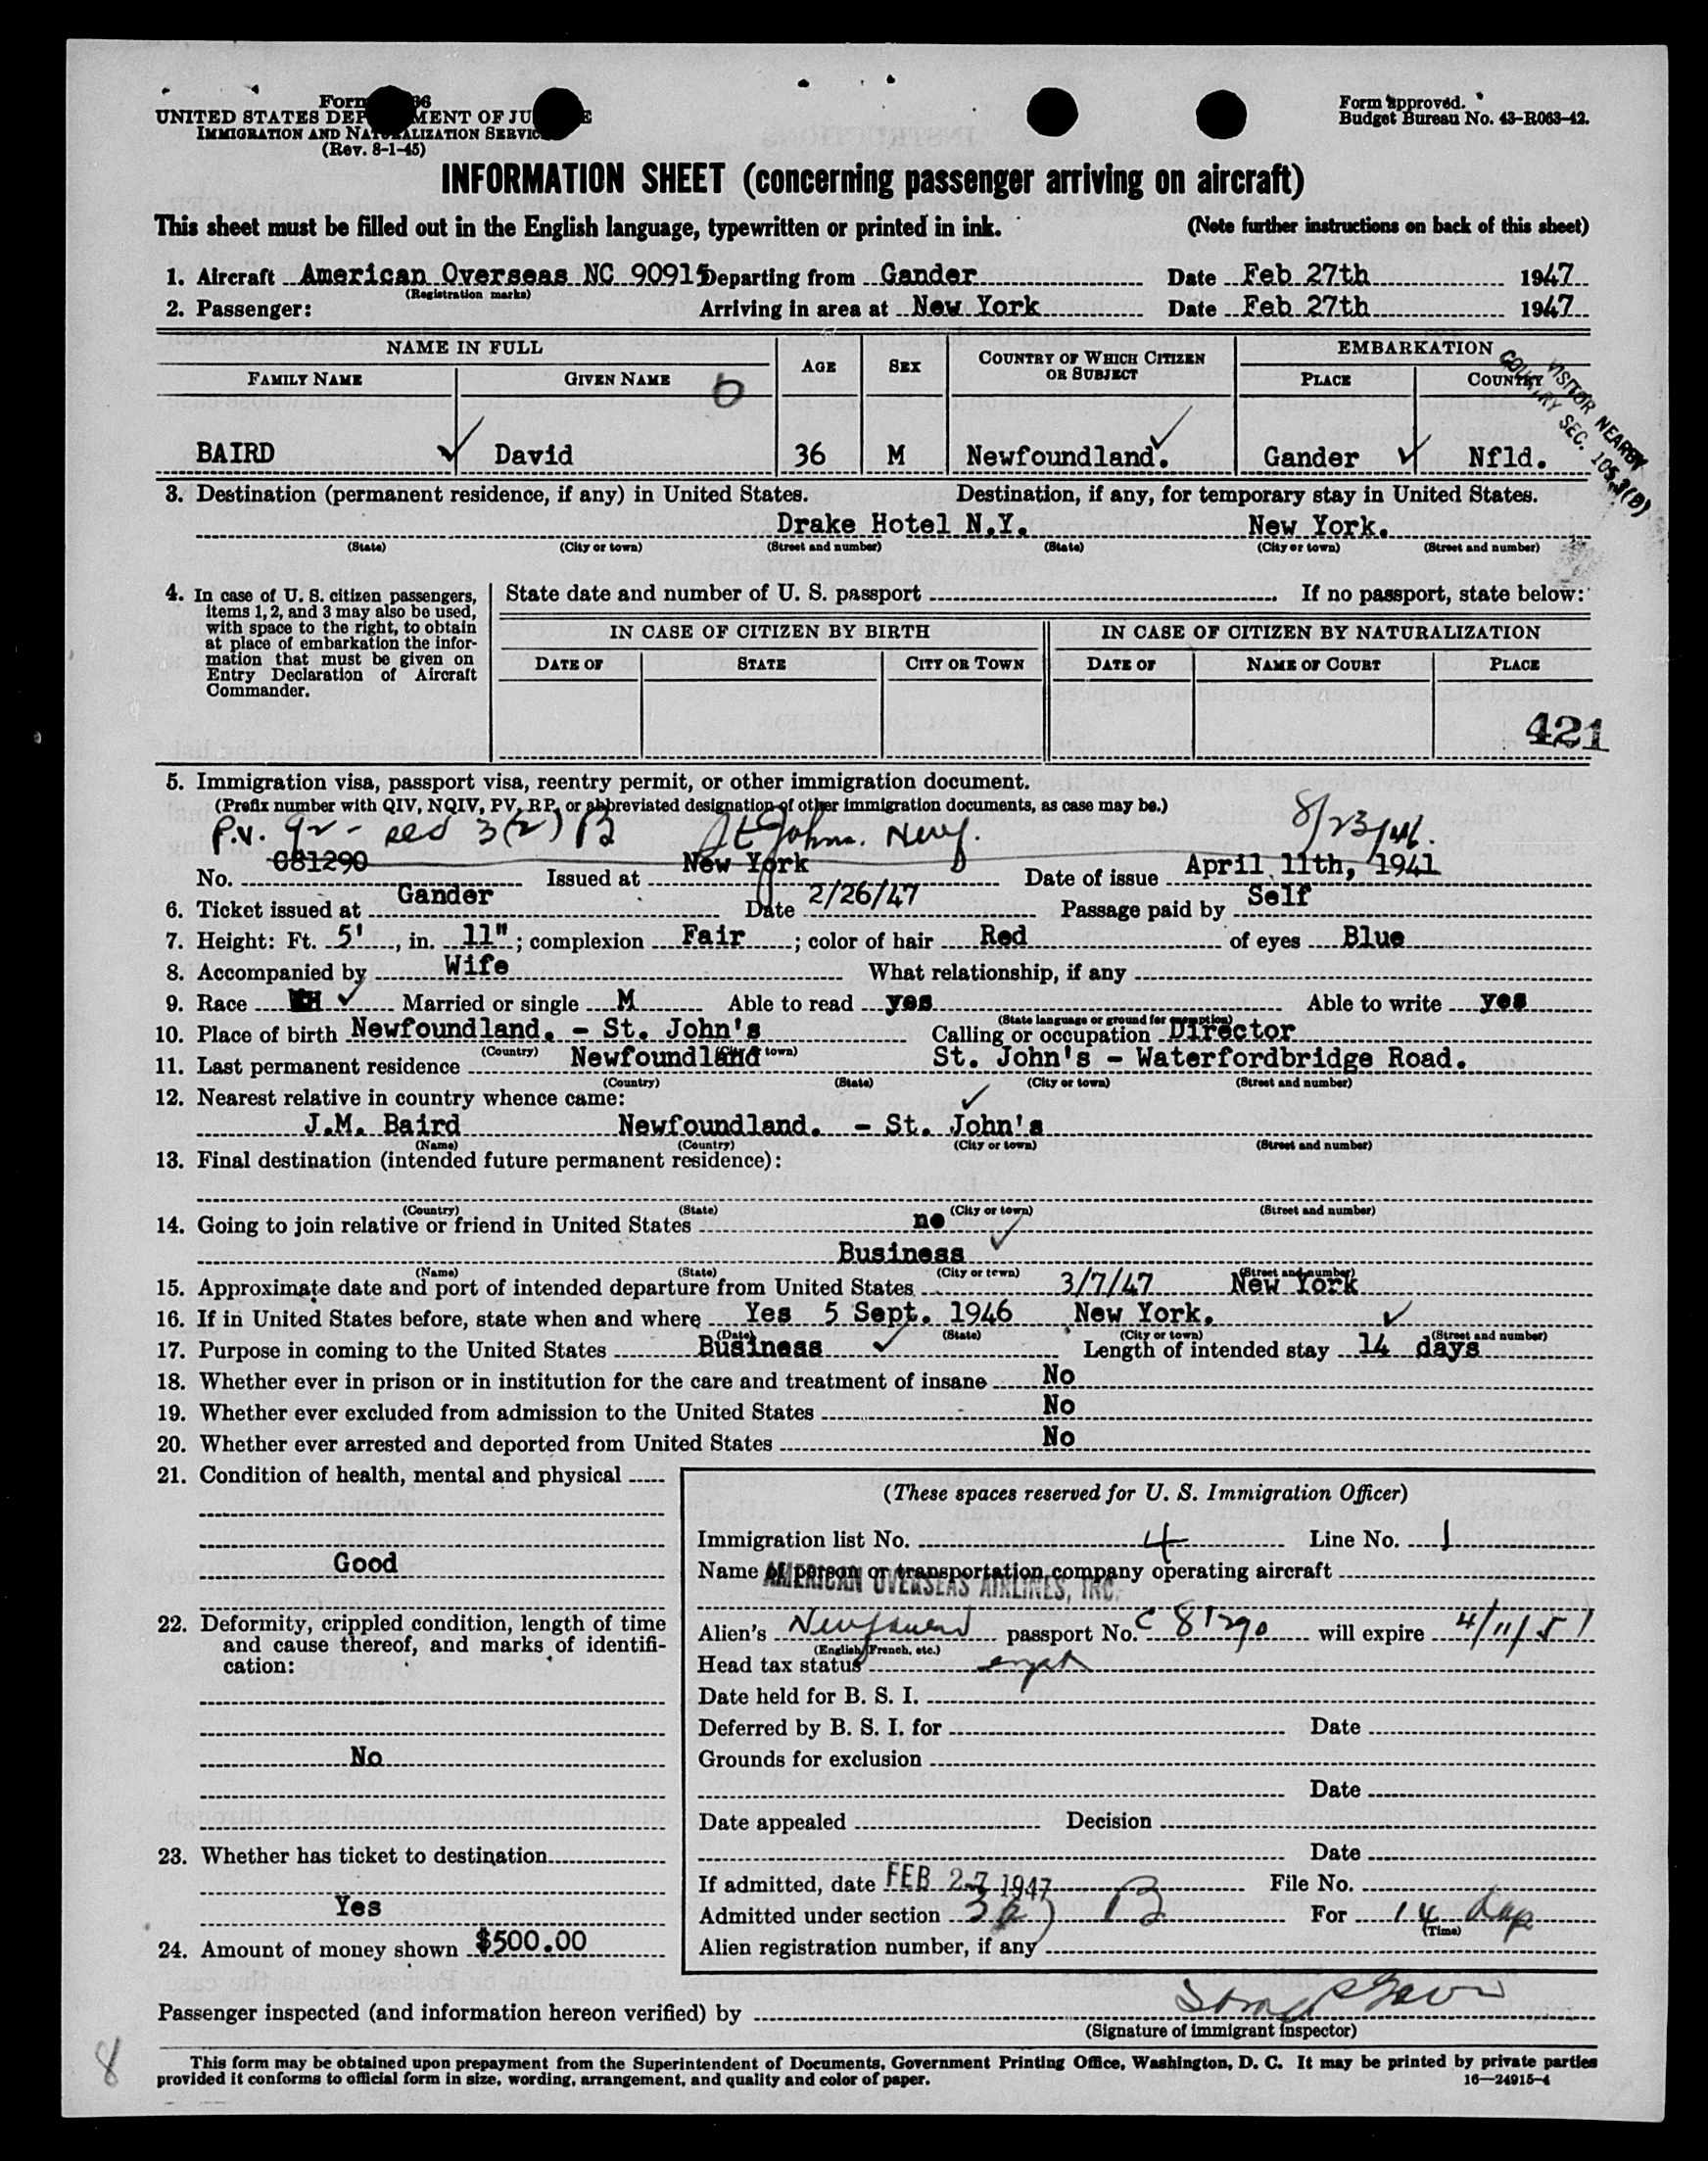 Form 66
UNITED STATES DEP MENT OF JU E
IMMIGRATION AND NATURALIZATION SERVICE
(Rev. 8-1-45)
Form approved.
Budget Bureau No. 43-R063-42.
INFORMATION SHEET (concerning passenger arriving on aircraft)
This sheet must be filled out in the English language, typewritten or printed in ink. (Note further instructions on back of this sheet)
1. Aircraft American Overseas NC 90915 Departing from Gander Date Feb 27th 1947
(Registration marks)
2. Passenger: Arriving in area at New York Date Feb 27th 1947
NAME IN FULL AGE SEX COUNTRY OF WHICH CITIZEN OR SUBJECT EMBARKATION
FAMILY NAME GIVEN NAME PLACE COUNTRY
VISITOR NEARBY
COUNTRY SEC. 105.3(B)
BAIRD David 36 M Newfoundland. Gander Nfld.
3. Destination (permanent residence, if any) in United States. Destination, if any, for temporary stay in United States.
Drake Hotel N.Y. New York.
(State) (City or town) (Street and number) (State) (City or town) (Street and number)
4. In case of U. S. citizen passengers, items 1, 2, and 3 may also be used, with space to the right, to obtain at place of embarkation the information that must be given on Entry Declaration of Aircraft Commander.
State date and number of U. S. passport If no passport, state below:
IN CASE OF CITIZEN BY BIRTH IN CASE OF CITIZEN BY NATURALIZATION
DATE OF STATE CITY OR TOWN DATE OF NAME OF COURT PLACE
421
5. Immigration visa, passport visa, reentry permit, or other immigration document.
(Prefix number with QIV, NQIV, PV, RP, or abbreviated designation of other immigration documents, as case may be.)
P.V. 92 - sec 3(2) B St Johns. Newf. 8/23/46.
No. 081290 Issued at New York Date of issue April 11th, 1941
6. Ticket issued at Gander Date 2/26/47 Passage paid by Self
7. Height: Ft. 5', in. 11"; complexion Fair; color of hair Red of eyes Blue
8. Accompanied by Wife What relationship, if any
9. Race Married or single M Able to read yes Able to write yes
(State language or ground for exemption)
10. Place of birth Newfoundland. - St. John's Calling or occupation Director
(Country) (City or town)
11. Last permanent residence Newfoundland St. John's - Waterfordbridge Road.
(Country) (State) (City or town) (Street and number)
12. Nearest relative in country whence came:
J.M. Baird Newfoundland. - St. John's
(Name) (Country) (City or town) (Street and number)
13. Final destination (intended future permanent residence):
(Country) (State) (City or town) (Street and number)
14. Going to join relative or friend in United States no
Business
(Name) (State) (City or town) (Street and number)
15. Approximate date and port of intended departure from United States 3/7/47 New York
16. If in United States before, state when and where Yes 5 Sept. 1946 New York.
(Date) (State) (City or town) (Street and number)
17. Purpose in coming to the United States Business Length of intended stay 14 days
18. Whether ever in prison or in institution for the care and treatment of insane No
19. Whether ever excluded from admission to the United States No
20. Whether ever arrested and deported from United States No
21. Condition of health, mental and physical
Good
22. Deformity, crippled condition, length of time and cause thereof, and marks of identification:
No
23. Whether has ticket to destination
Yes
24. Amount of money shown $500.00
(These spaces reserved for U. S. Immigration Officer)
Immigration list No. 4 Line No. 1
Name of person or transportation company operating aircraft
AMERICAN OVERSEAS AIRLINES, INC.
Alien's Newfound passport No. C 81290 will expire 4/11/51
(English, French, etc.)
Head tax status
Date held for B. S. I.
Deferred by B. S. I. for Date
Grounds for exclusion
Date
Date appealed Decision
Date
If admitted, date FEB 27 1947 File No.
Admitted under section 3(2) B For 14 days
(Time)
Alien registration number, if any
Passenger inspected (and information hereon verified) by
(Signature of immigrant inspector)
8
This form may be obtained upon prepayment from the Superintendent of Documents, Government Printing Office, Washington, D. C. It may be printed by private parties
provided it conforms to official form in size, wording, arrangement, and quality and color of paper. 16—24915-4